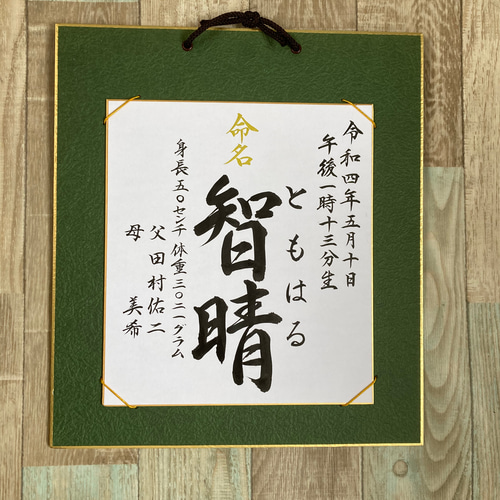 令和四年五月十日
午後一時十三分生
命名
ともはる
智晴
身長五〇センチ 体重三〇二一グラム
父 田村佑二
母 美希